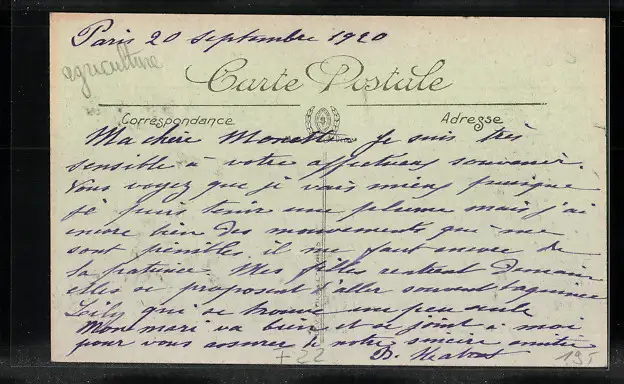 Paris 20 Septembre 1920
agriculture
Carte Postale
Correspondance
Adresse
Ma chère Je suis très
sensible à votre affectueux souvenir.
Vous voyez que je vais mieux puisque
je puis tenir une plume mais j'ai
encore bien des mouvements qui me
sont pénibles, il me faut encore de
la patience. Mes filles rentrent Demain
elles se proposent d'aller souvent taquiner
qui se trouve un peu seule
Mon mari va bien et se joint à moi
pour vous assurer de notre sincère amitié
B.
+ 22
195